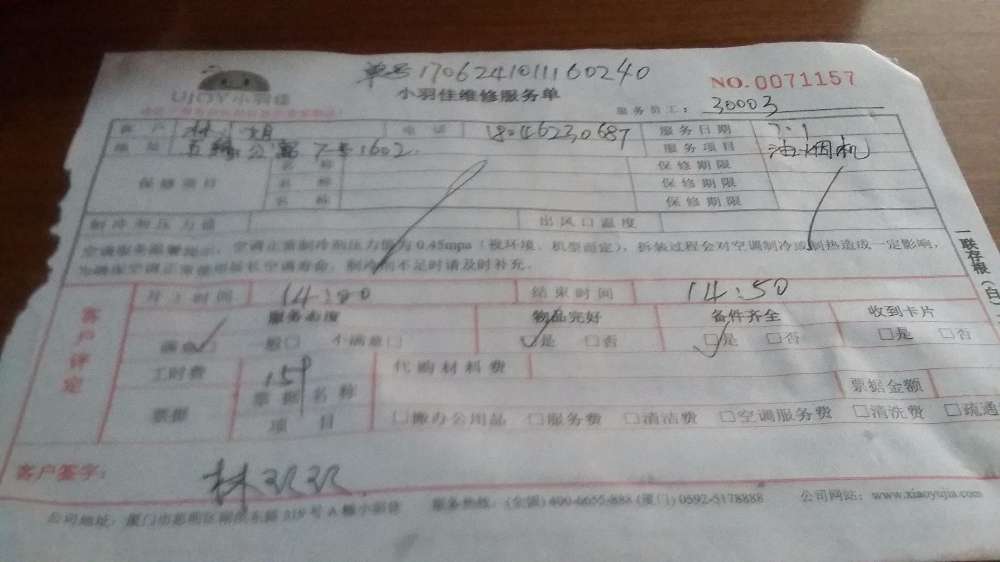 单号1706241011160240
UJOY小羽佳
小羽佳维修服务单
NO.0071157
服务员工: 30003
客户 林 电话 18046230687 服务日期 7.1
地址 公寓7号1602. 服务项目 油烟机
保修项目 名称 保修期限
名称 保修期限
名称 保修期限
制冷剂压力值 出风口温度
空调服务温馨提示:空调正常制冷剂压力值为0.45mpa(视环境、机型而定),拆装过程会对空调制冷或制热造成一定影响,
为确保空调正常使用延长空调寿命,制冷剂不足时请及时补充。
一联存根(白)
客户评定
开工时间 14:00 结束时间 14:50
服务态度 物品完好 备件齐全 收到卡片
满意□ 一般□ 不满意□ □是 □否 □是 □否 □是 □否
工时费 代购材料费
票据 票据项目 名称 票据金额
□搬办公用品 □服务费 □清洁费 □空调服务费 □清洗费 □疏通
客户签字: 林双双
公司地址:厦门市思明区 号A幢小羽佳 服务热线:(全国)400-6655-888 (厦门)0592-5178888 公司网站:www.xiaoyujia.com